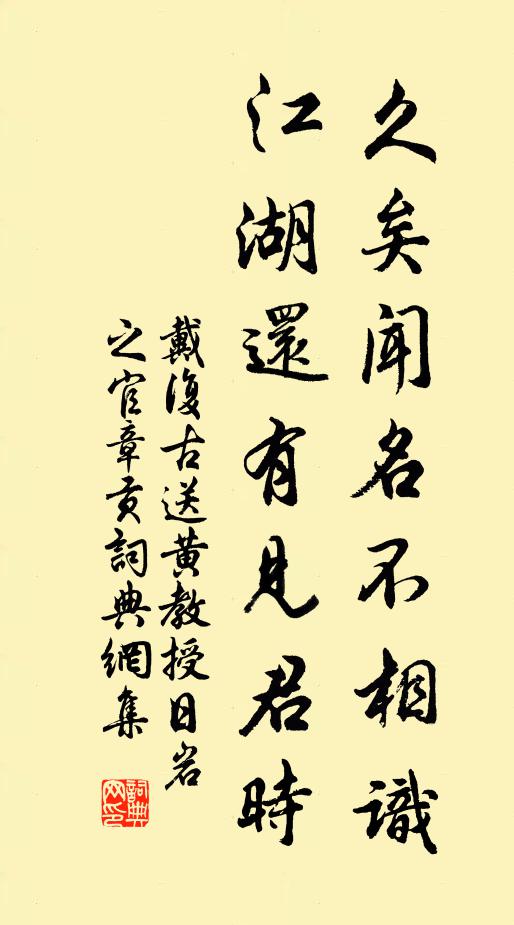 久矣聞名不相識
江湖還有見君時
戴復古送黃教授日岩
之官章贡詞典網集
詞典
网印